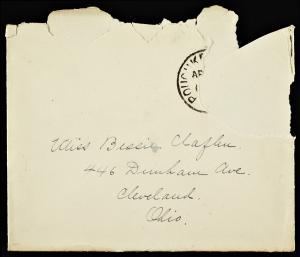 POUGHKE
AP
Miss Bessie Claflin.
446 Dunham Ave.
Cleveland.
Ohio.